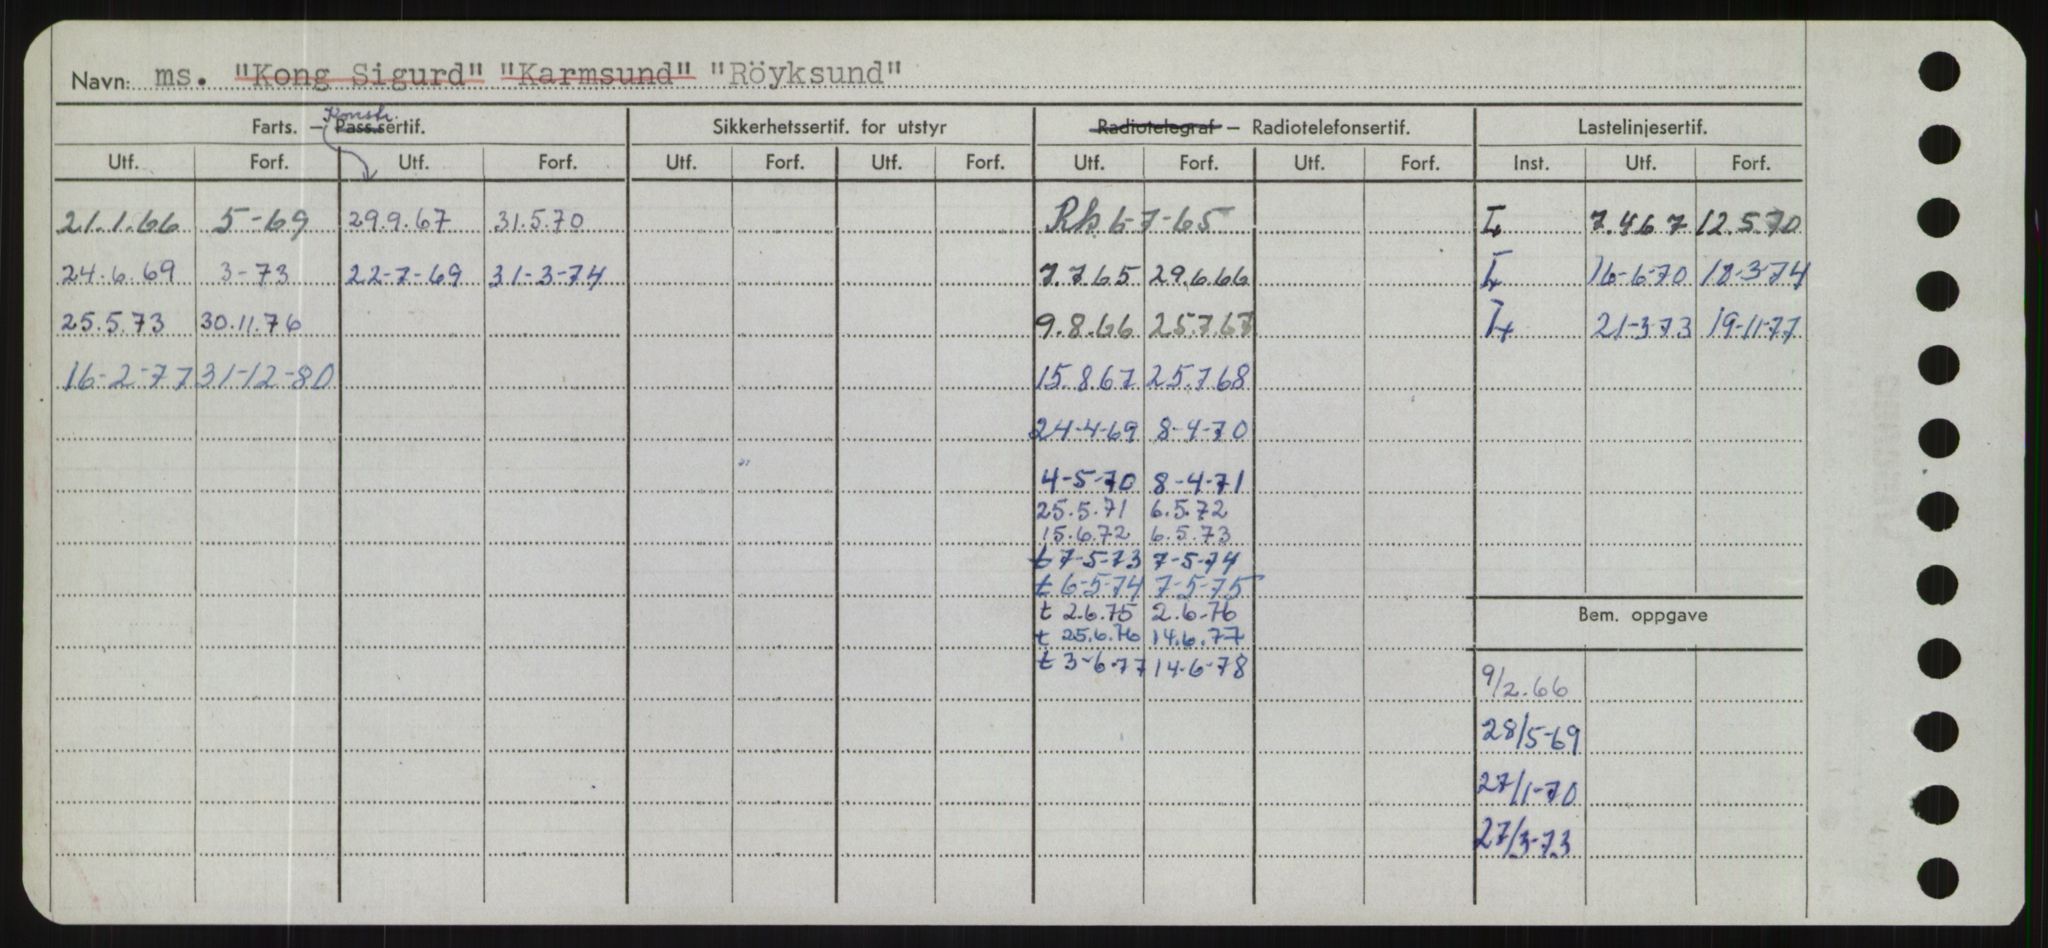 Navn: ms. "Kong Sigurd" "Karmsund" "Röyksund"
Konstr.
Farts. – Pass.sertif. Sikkerhetssertif. for utstyr Radiotelegraf – Radiotelefonsertif. Lastelinjesertif.
Utf. Forf. Utf. Forf. Utf. Forf. Utf. Forf. Utf. Forf. Utf. Forf. Inst. Utf. Forf.
21.1.66 5-69 29.9.67 31.5.70 Rk. 6-7-65 7.4.67 12.5.70
24.6.69 3-73 22-7-69 31-3-74 7.7.65 29.6.66 16-6-70 18-3-74
25.5.73 30.11.76 9.8.66 25.7.67 21-3-73 19-11-77
16-2-77 31-12-80 15.8.67 25.7.68
24-4-69 8-4-70
4-5-70 8-4-71
25.5.71 6.5.72
15.6.72 6.5.73
t 7-5-73 7-5-74
t 6-5-74 7-5-75
t 2.6.75 2.6.76
t 25.6.76 14.6.77
t 3-6-77 14-6-78
Bem. oppgave
9/2.66
28/5-69
27/1-70
27/3-73